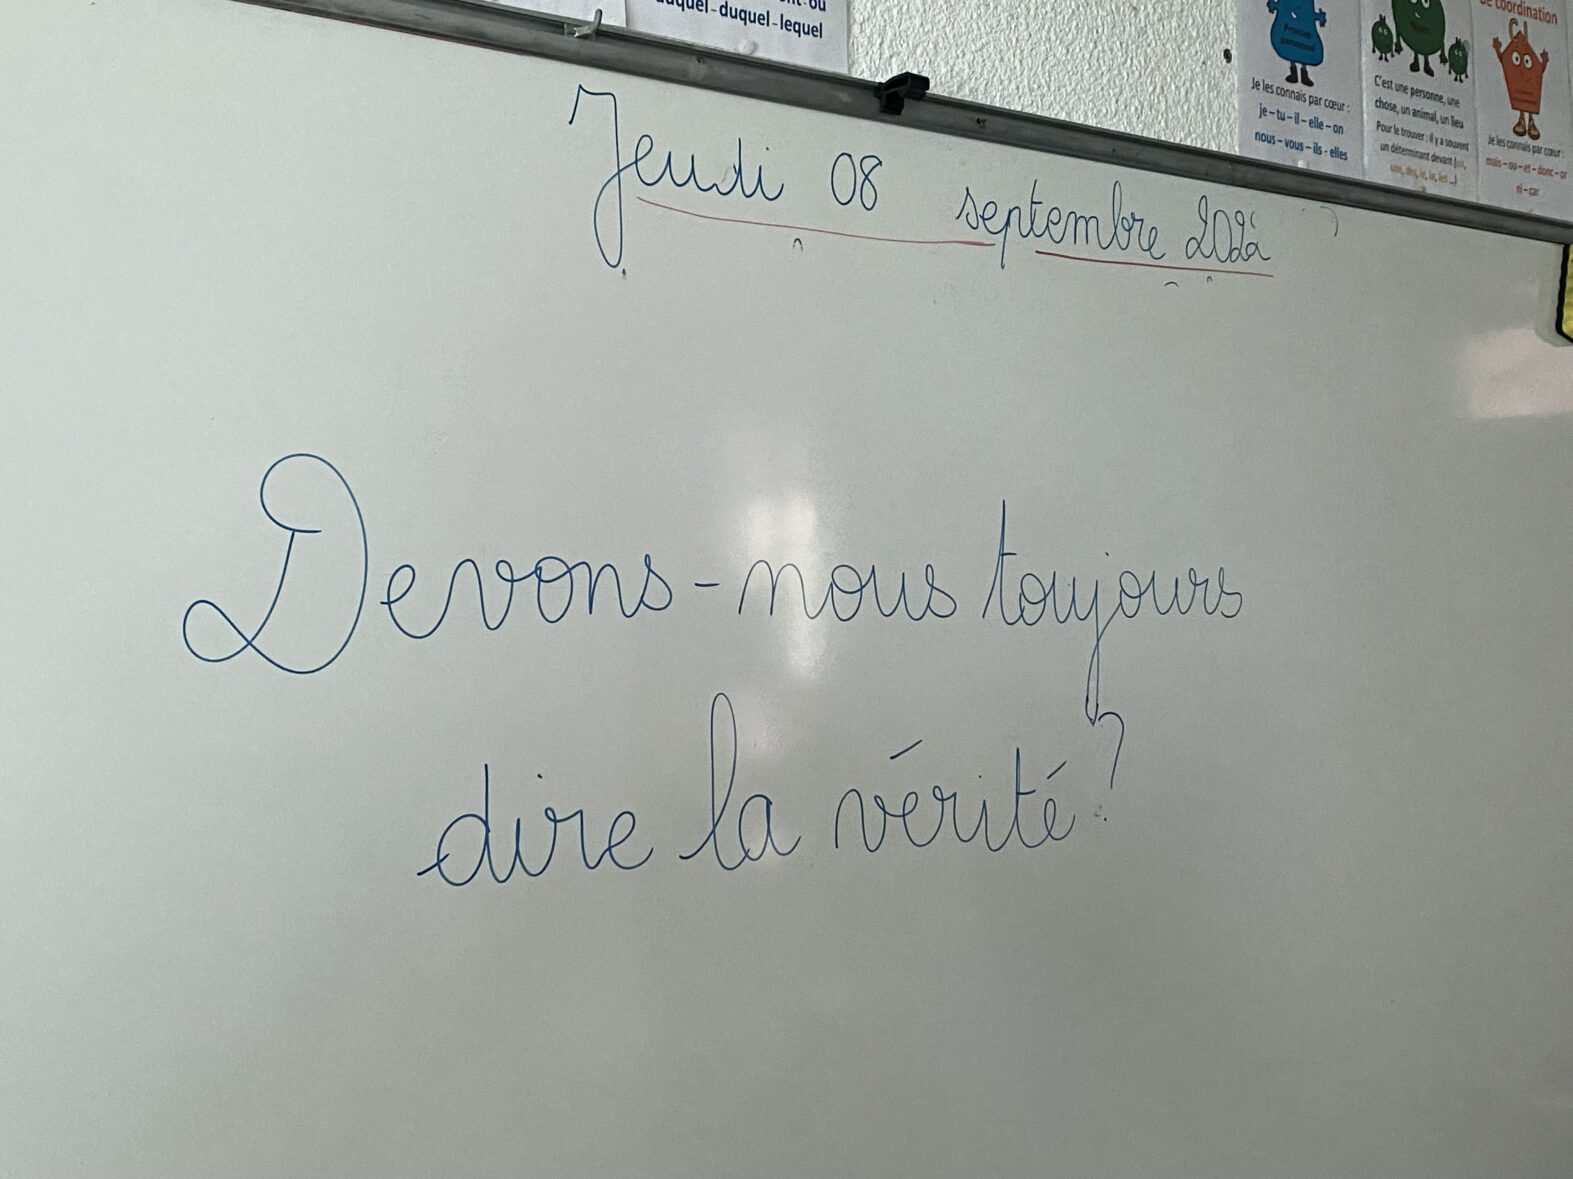 duquel-lequel
Je les connais par cœur :
je – tu – il – elle – on
nous – vous – ils - elles
C'est une personne, une
chose, un animal, un lieu
Pour le trouver : il y a souvent
un déterminant devant
de coordination
Je les connais par cœur :
mais – ou – et – donc – or
ni – car
Jeudi 08 septembre 2022
Devons-nous toujours
dire la vérité ?